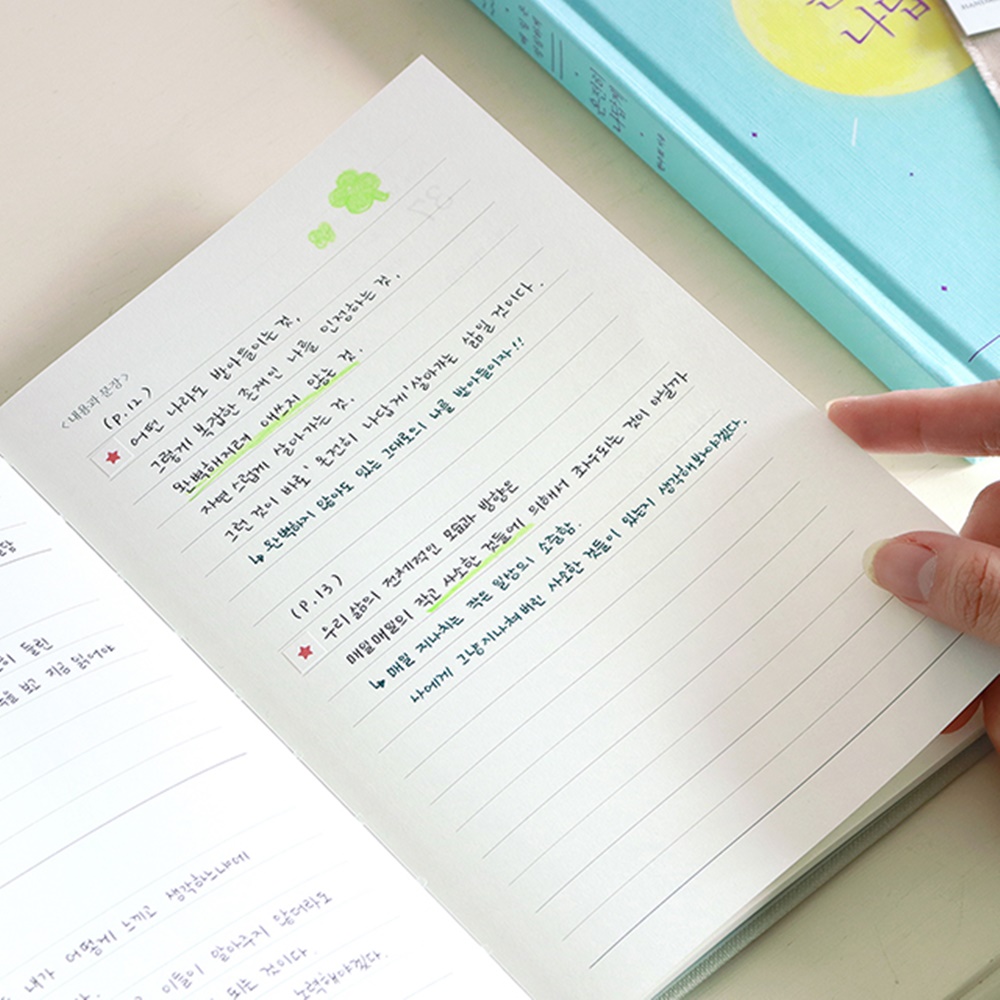 <내용과 문장>
(P.12)
어떤 나라도 받아들이는 것,
그렇게 복잡한 존재인 나를 인정하는 것,
완벽해지려 애쓰지 않는 것.
자연스럽게 살아가는 것.
그런 것이 바로 '온전히 나답게' 살아가는 삶일 것이다.
↳ 완벽하지 않아도 있는 그대로의 나를 받아들이자!!
(P.13)
우리 삶의 전체적인 모습과 방향은
매일매일의 작고 사소한 것들에 의해서 좌우되는 것이 아닐까
↳ 매일 지나치는 작은 일상의 소중함.
나에게 그냥 지나쳐버린 사소한 것들이 있는지 생각해봐야겠다.
들린
보고 지금 읽어야
내가 어떻게 느끼고 생각하느냐에
이들이 알아주지 않더라도
되는 것이다.
노력해야겠다.